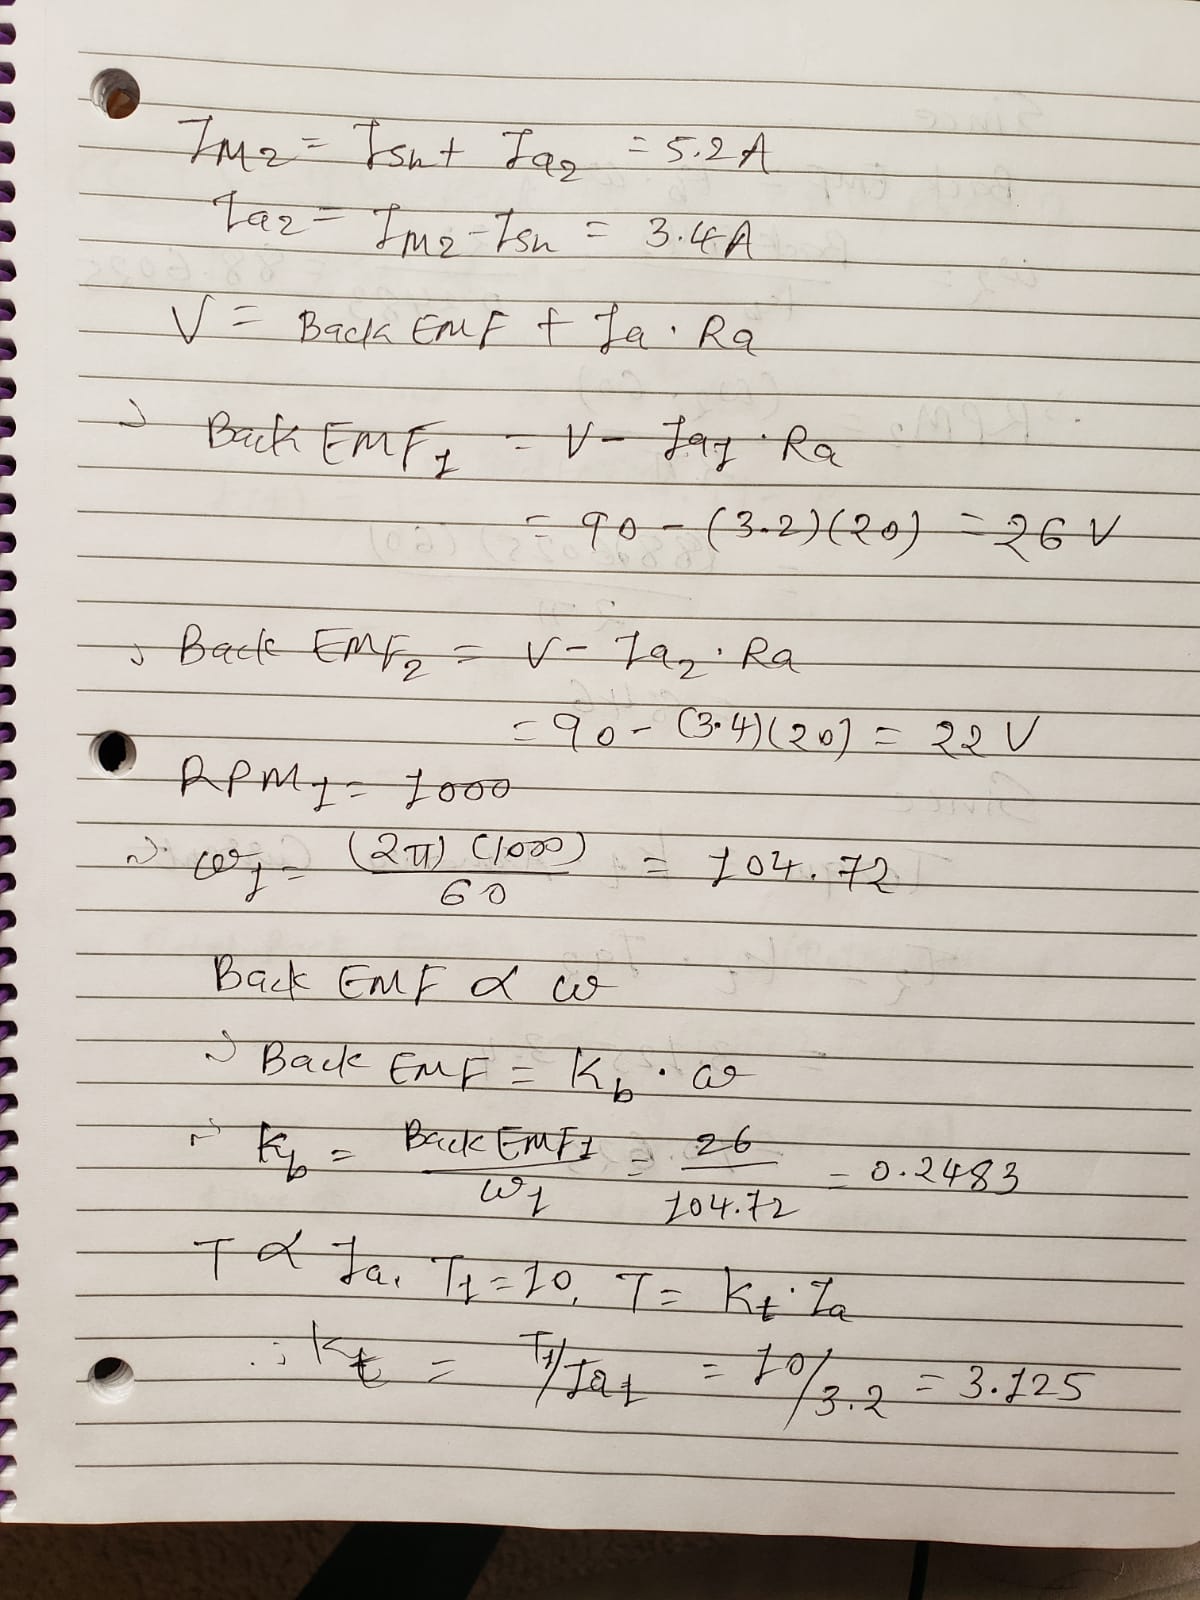 I_M2 = I_sh + I_a2 = 5.2 A
I_a2 = I_M2 - I_sh = 3.4 A
V = Back EMF + I_a · R_a
∴ Back EMF_1 = V - I_a1 · R_a
= 90 - (3.2)(20) = 26 V
∴ Back EMF_2 = V - I_a2 · R_a
= 90 - (3.4)(20) = 22 V
RPM_1 = 1000
∴ ω_1 = (2π)(1000)/60 = 104.72
Back EMF ∝ ω
∴ Back EMF = K_b · ω
∴ K_b = Back EMF1/ω_1 = 26/104.72 = 0.2483
T ∝ I_a, T_1 = 10, T = K_t · I_a
∴ K_t = T_1/I_a1 = 10/3.2 = 3.125